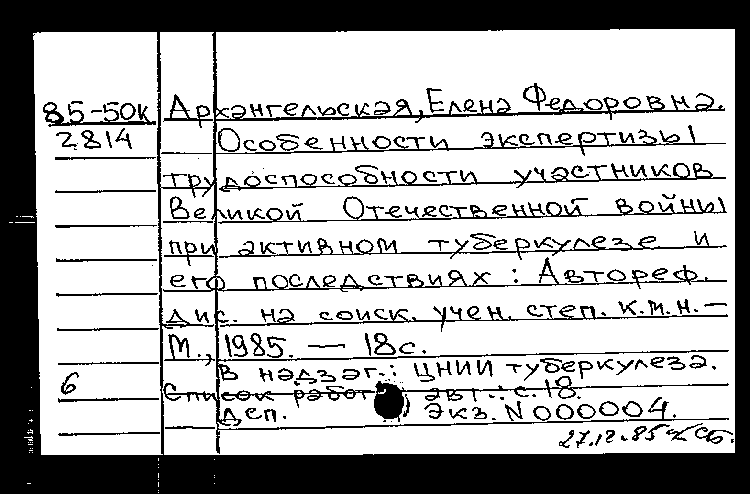 85-50к Архангельская, Елена Федоровна.
2814 Особенности экспертизы
трудоспособности участников
Великой Отечественной войны
при активном туберкулезе и
его последствиях : Автореф.
дис. на соиск. учен. степ. к.м.н. —
М., 1985. — 18с.
В надзаг.: ЦНИИ туберкулеза.
6 Список работ авт.: с.18.
Деп. Экз. N 000004.
27.12.85